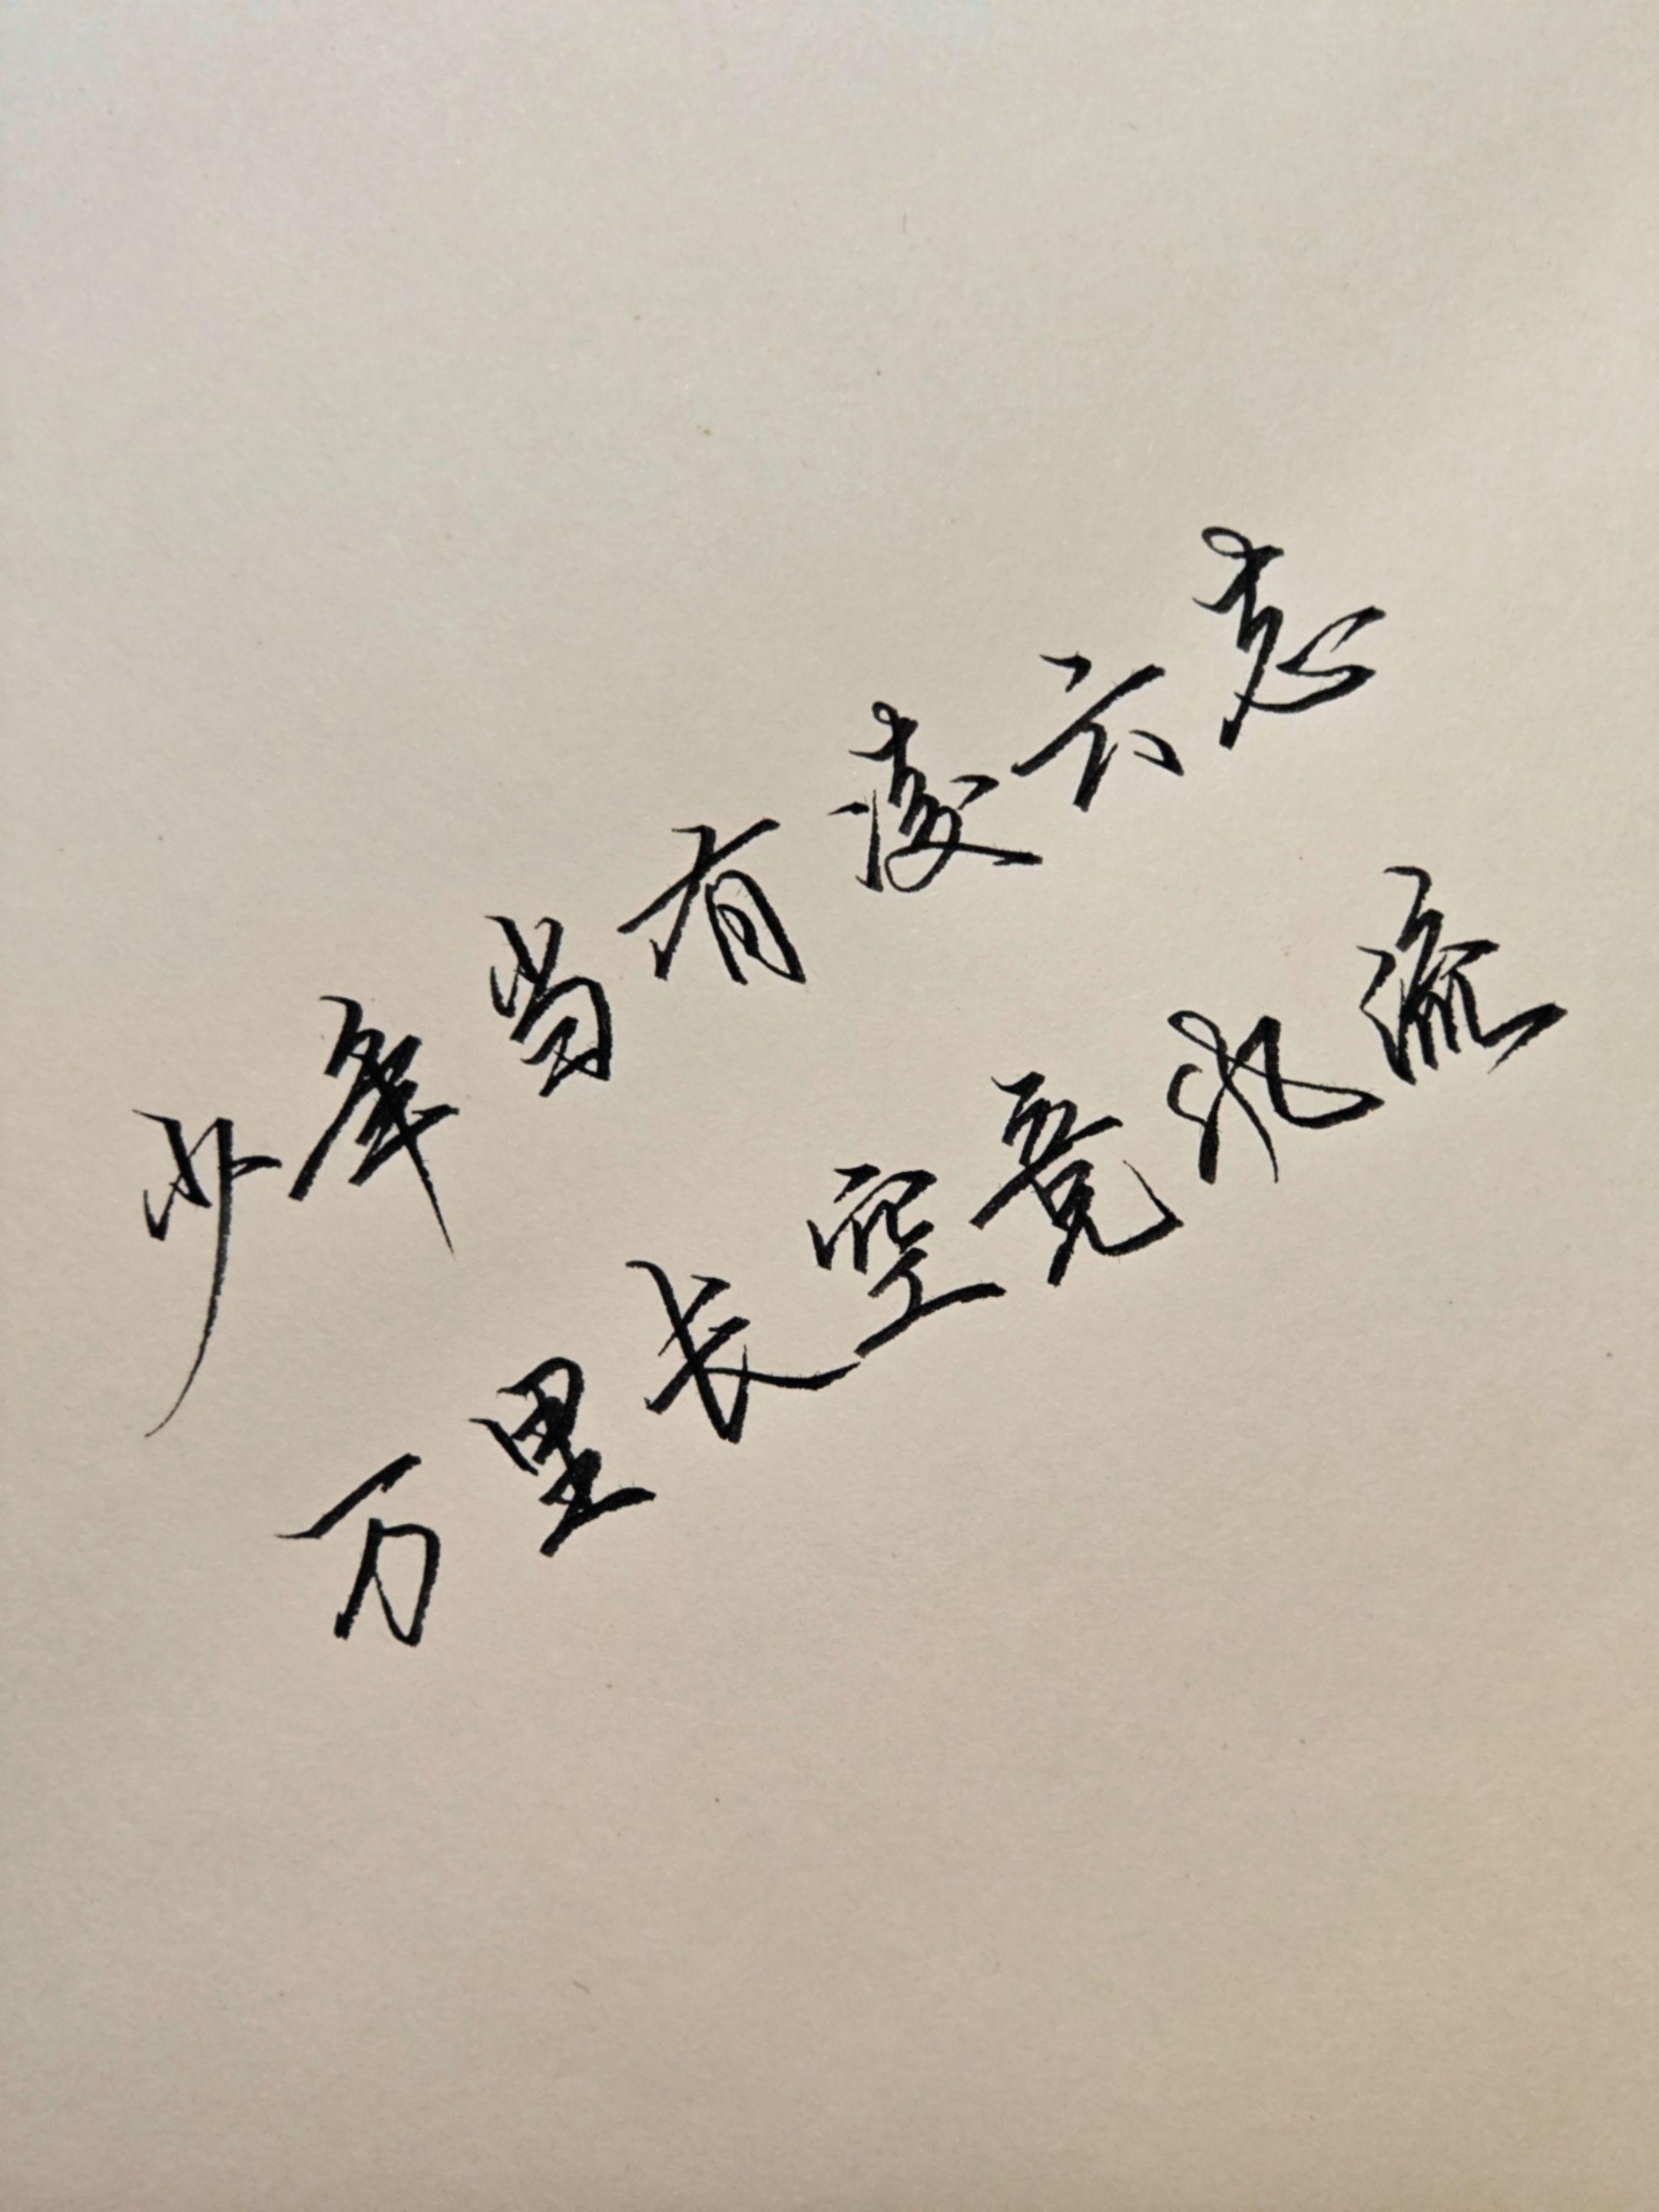 少年当有凌云志
万里长空竞风流